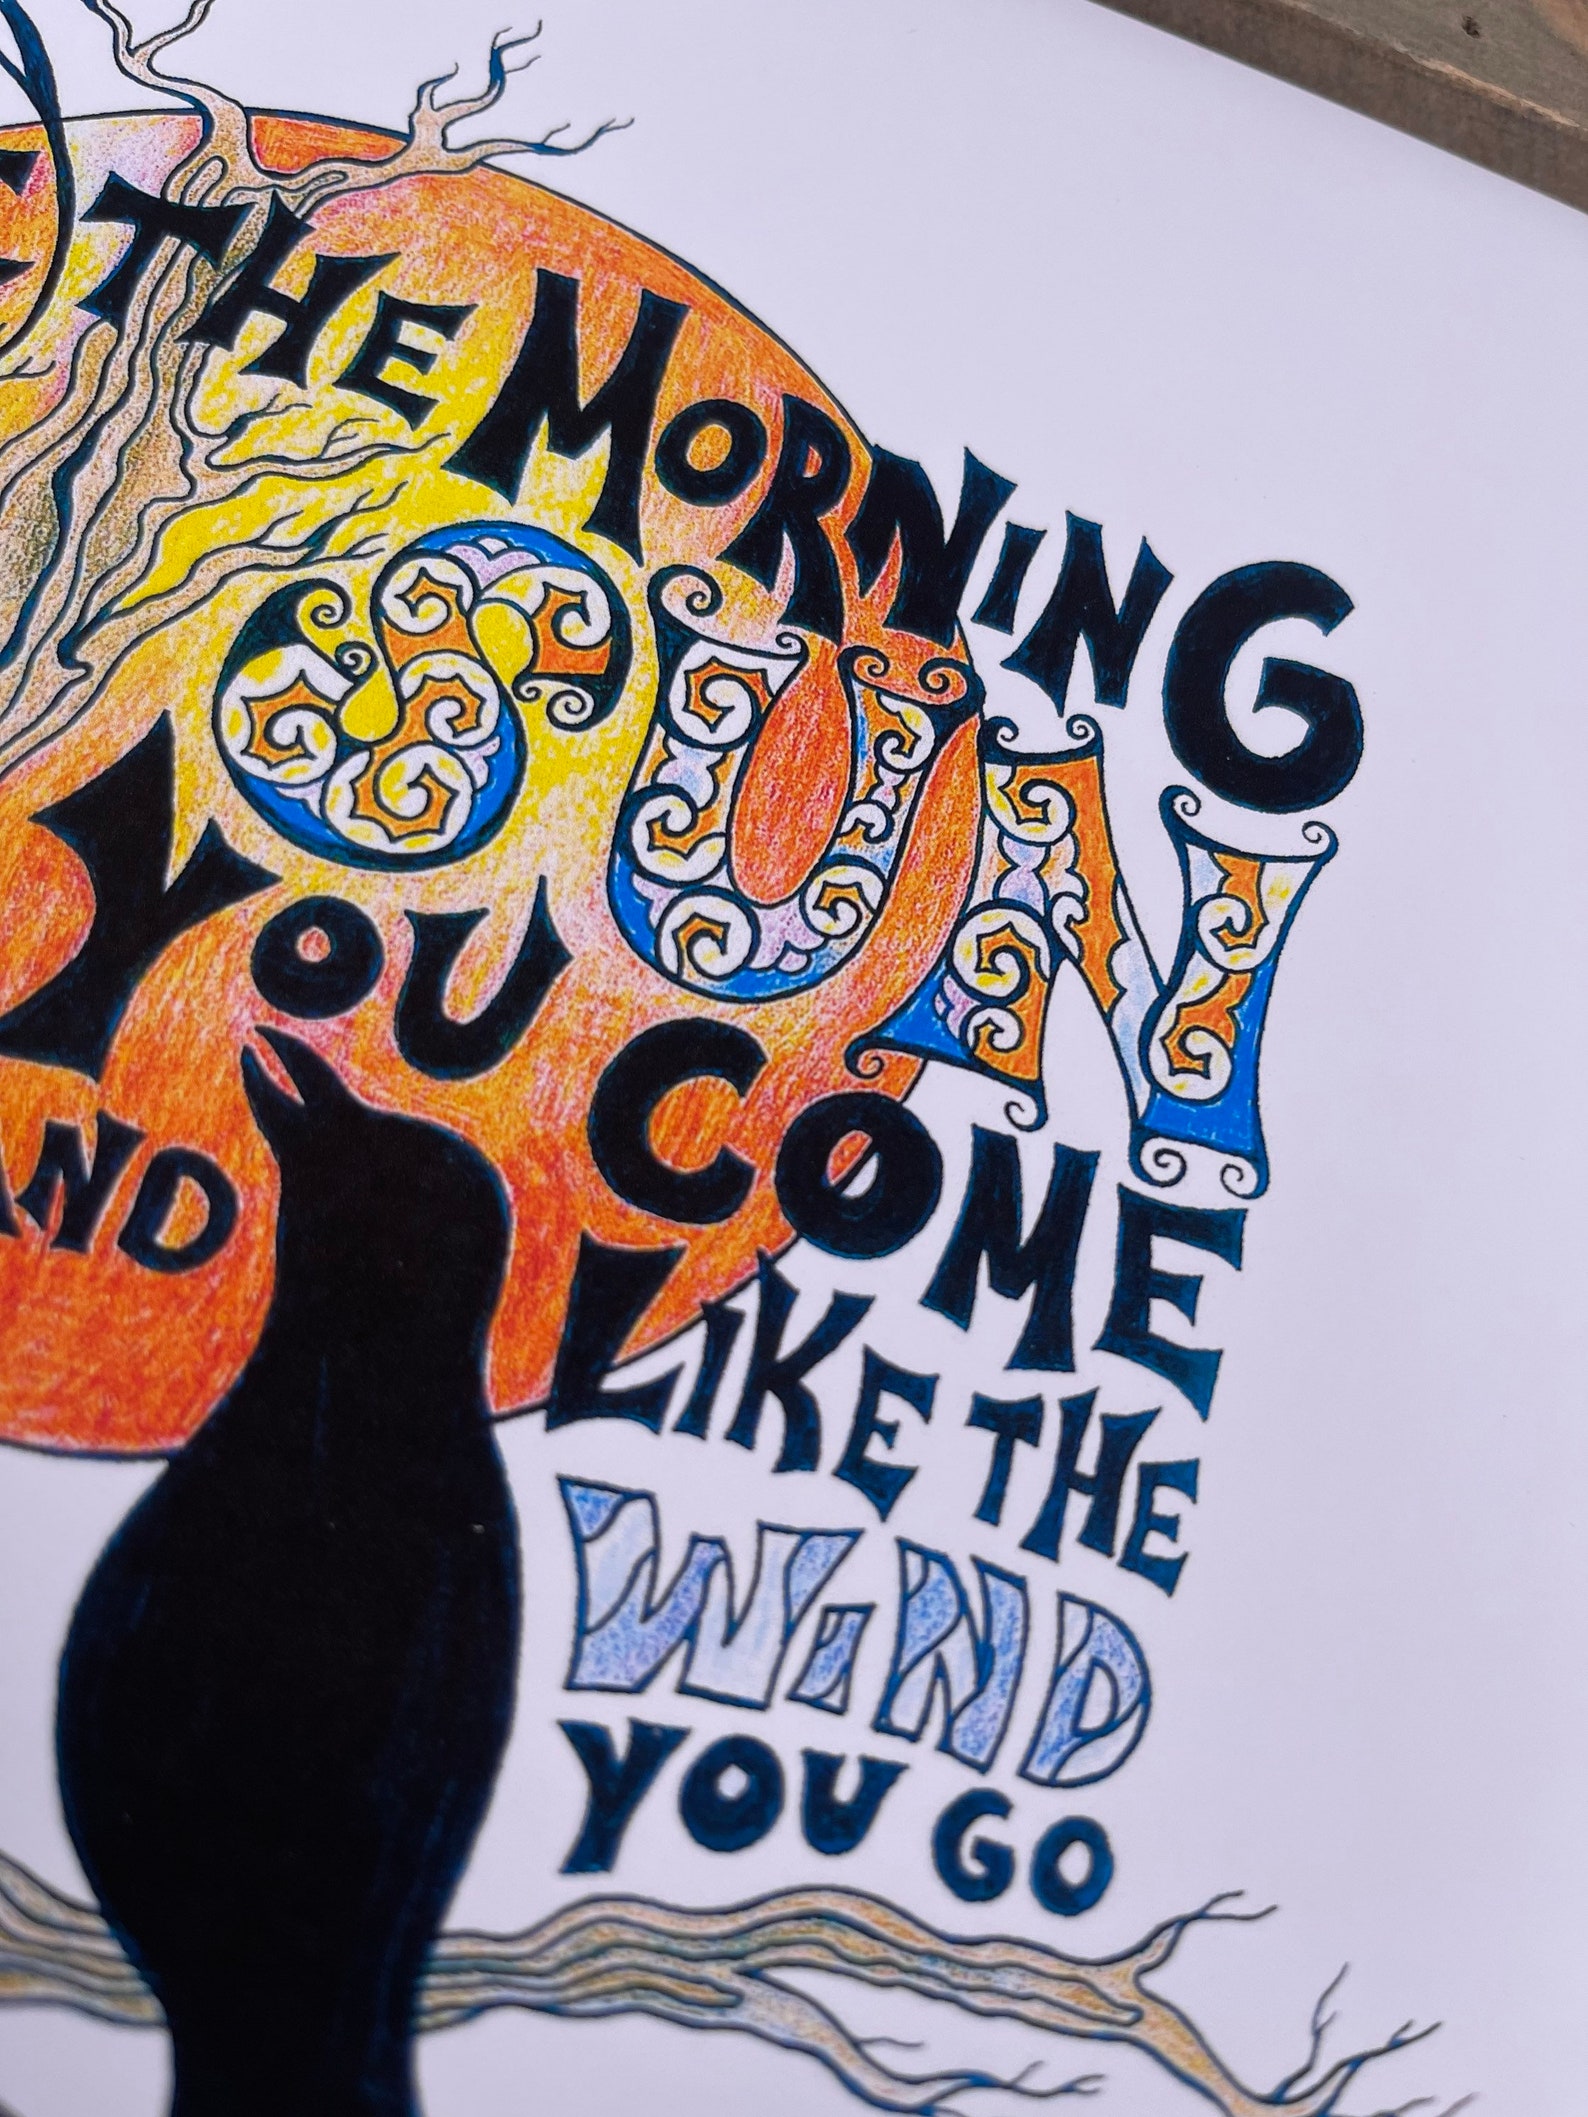 THE MORNING
SUN
YOU COME
AND
LIKE THE
WIND
YOU GO